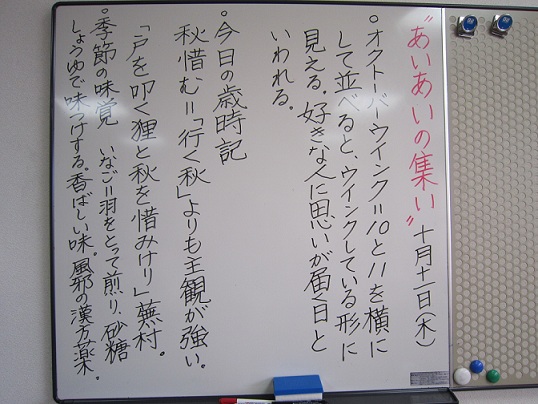 〝あいあいの集い〟 十月十一日(木)
○オクトーバーウインク=10と11を横に
して並べると、ウインクしている形に
見える。好きな人に思いが届く日と
いわれる。
○今日の歳時記
秋惜む=「行く秋」よりも主観が強い。
「戸を叩く狸と秋を惜みけり」蕪村。
○季節の味覚 いなご=羽をとって煎り、砂糖
しょうゆで味つけする。香ばしい味。風邪の漢方薬。